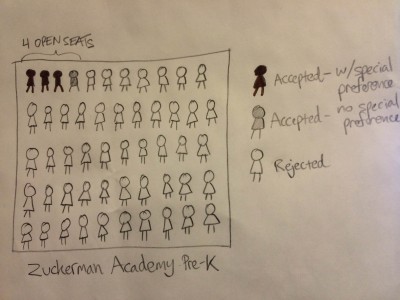 4 OPEN SEATS
Accepted - w/special
preference
Accepted - no special
preference
Rejected
Zuckerman Academy Pre-K